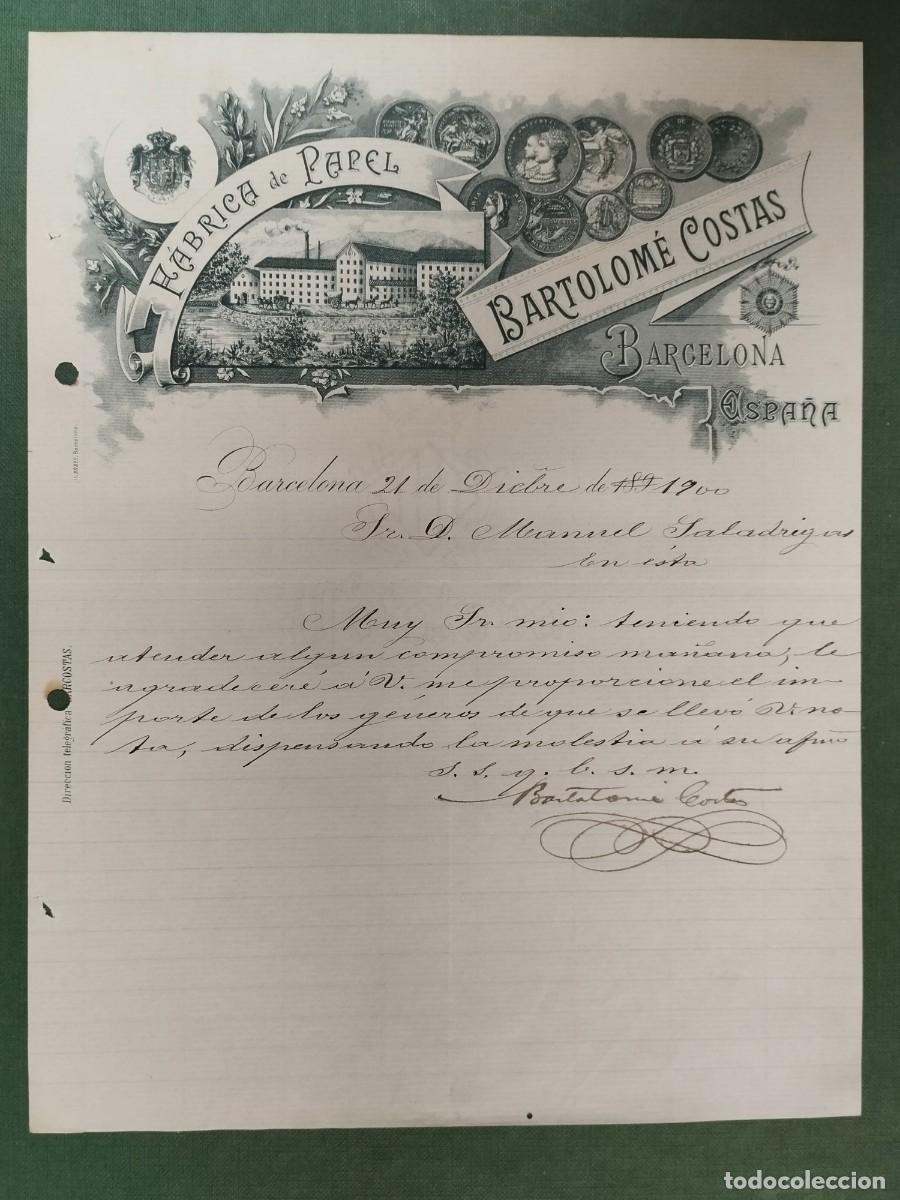 FÁBRICA de PAPEL
BARTOLOMÉ COSTAS
BARCELONA
ESPAÑA
Barcelona 21 de Dicbre de 189 1900
Sr. D. Manuel Saladrigas
En ésta
Muy Sr. mio: teniendo que
atender algun compromiso mañana, le
agradeceré á V. me proporcione el im-
porte de los géneros de que se llevó V. no-
ta, dispensando la molestia á su afmo
S. S. q. b. s. m.
Bartolomé Costas
Dirección telegráfica COSTAS.
todocoleccion